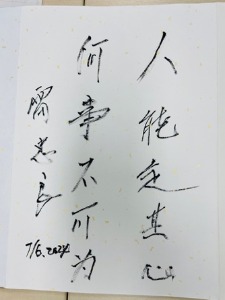 人能定其心
何事不可为
忠良
7/6, 2024